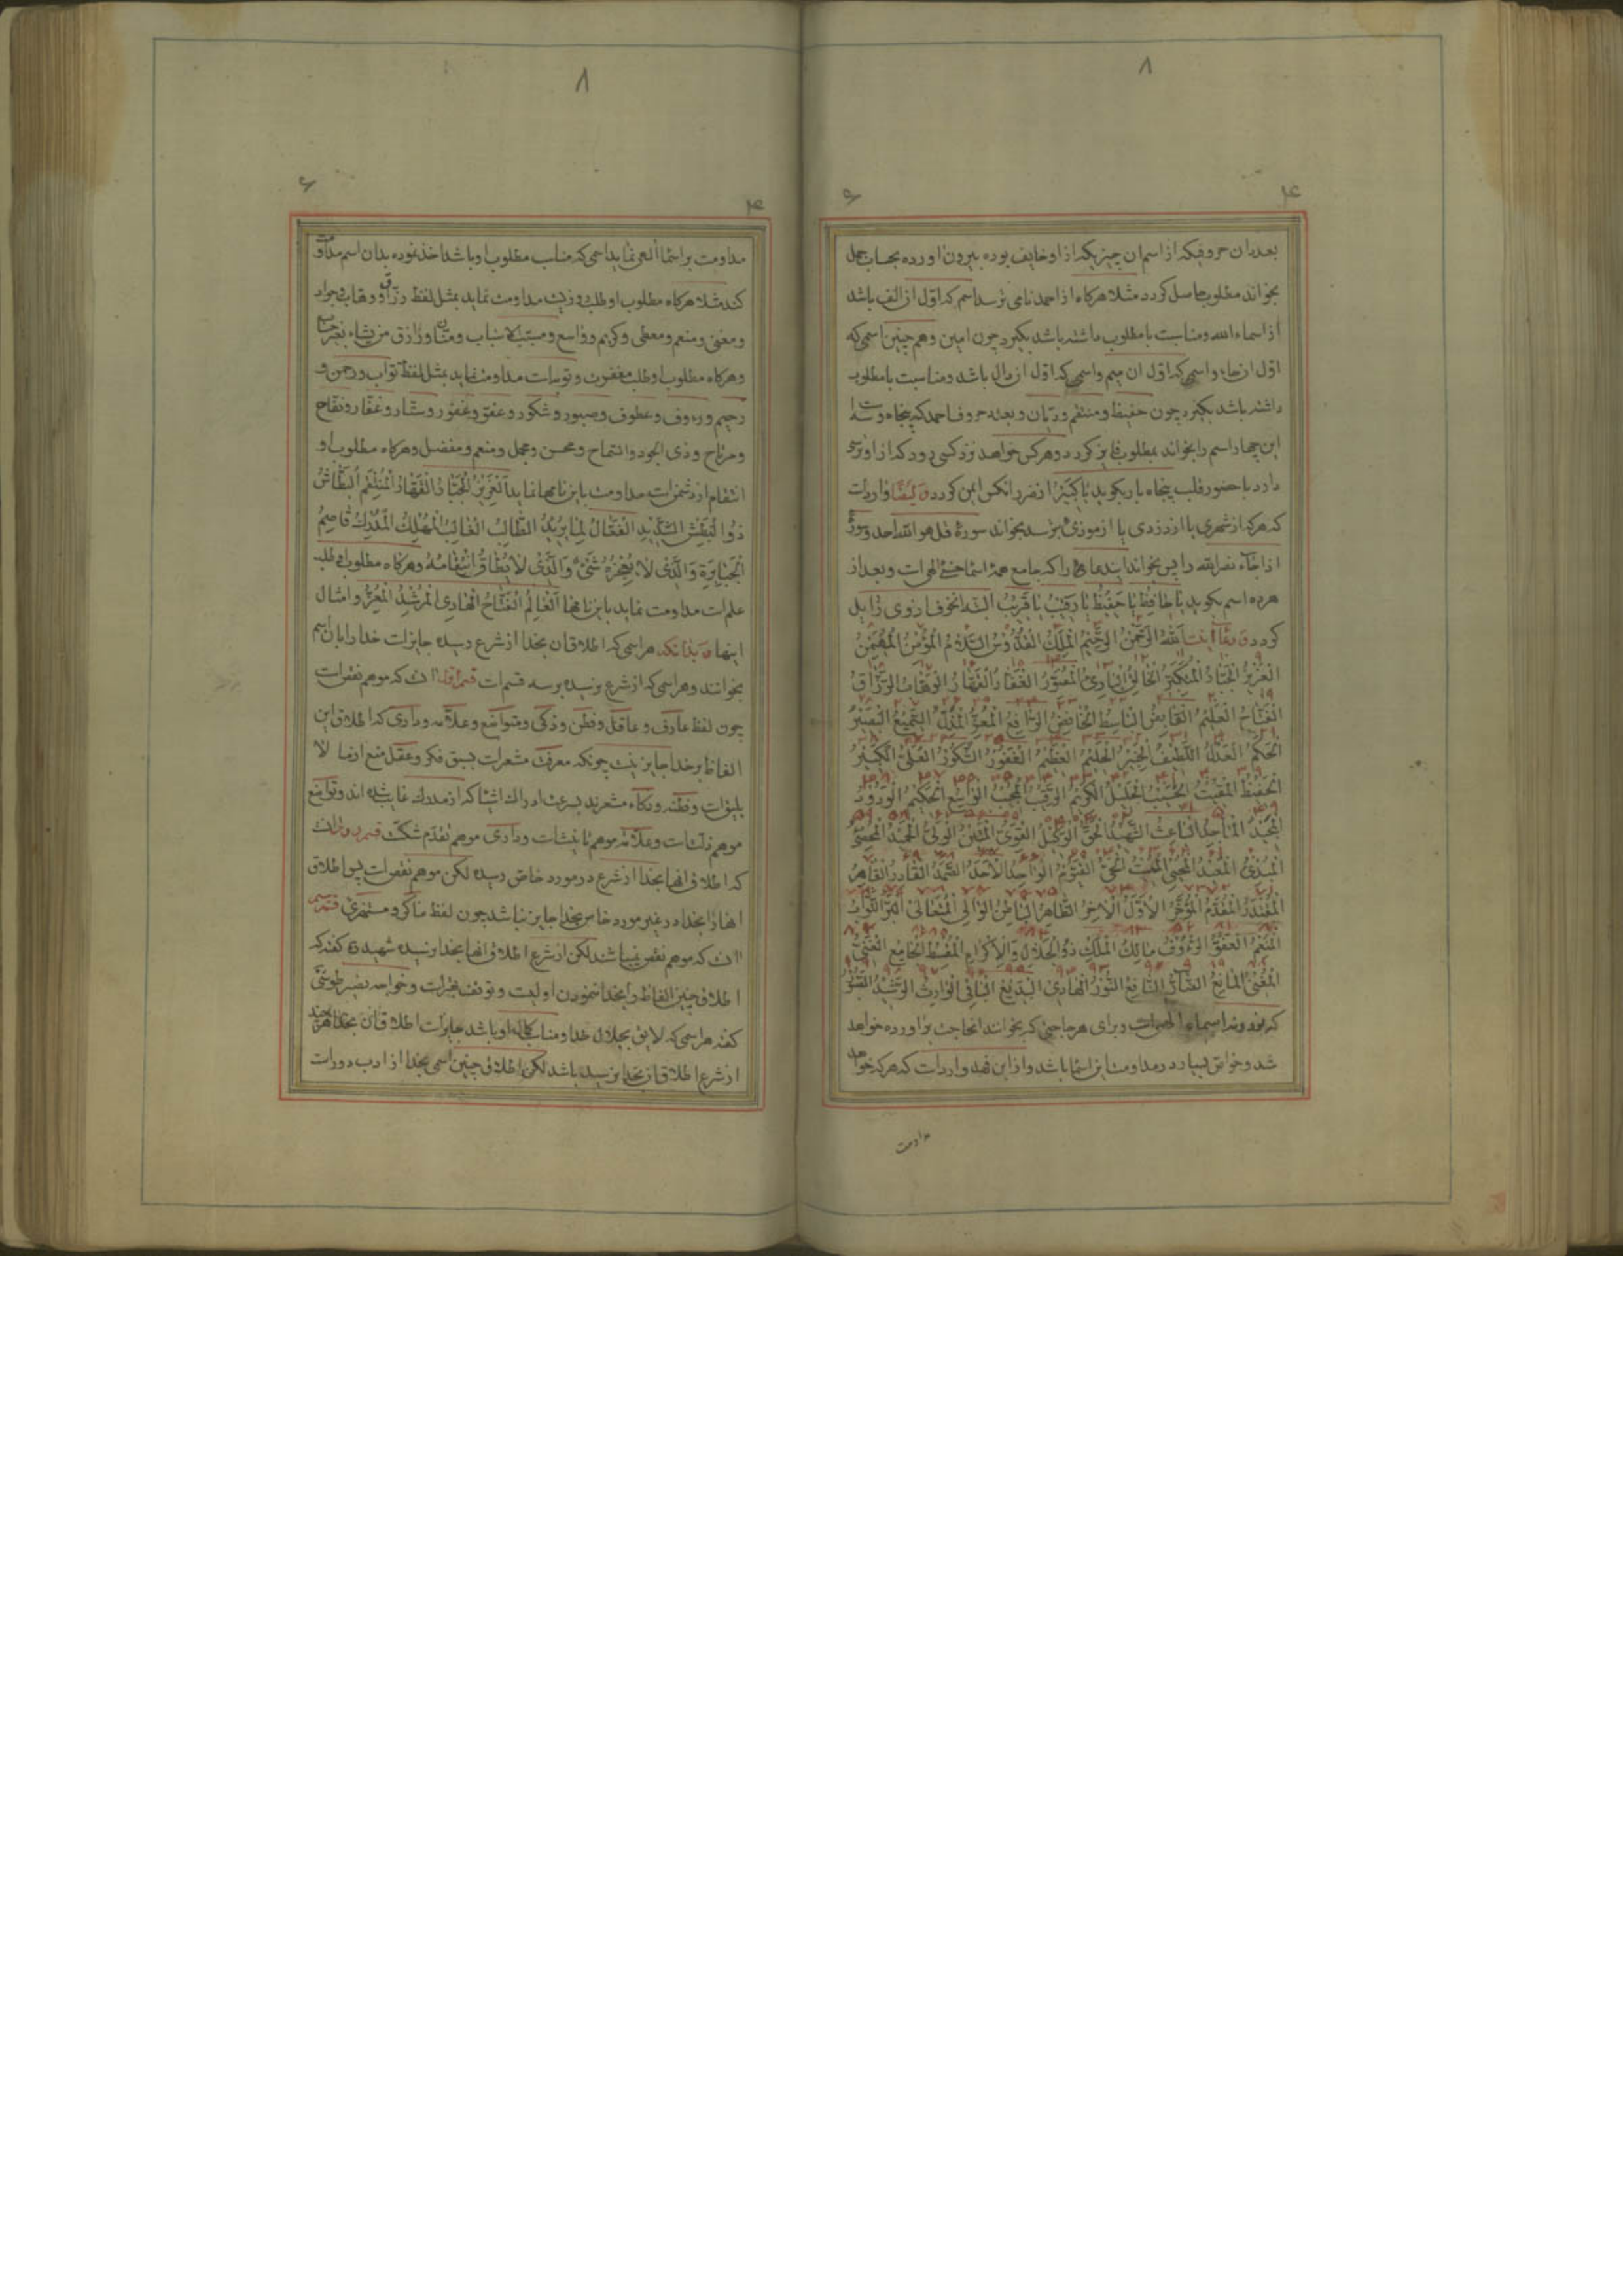 ۸
۴
۶
بعددان حروفیکه از اسم ان چیزیکه از او خایف بوده بیرون اورده بحساب جمل
بخواند مطلوب حاصل کردد مثلا هرکاه از احمد نامی ترسد اسم که اول از الف باشد
از اسماء الله و مناسبت با مطلوب داشته باشد بکیرد چون امین و هم چنین اسمی که
اول ان حاء و اسمی که اول ان میم و اسمی که اول ان دال باشد و مناسبت با مطلوب
داشته باشد بکیرد چون حفیظ و منتقم و دیان و بعدد حروف احمد که پنجاه و سه است
این چهار اسم را بخواند بمطلوب فایز کردد و هرکس خواهد نزد کسی رود که از او ترس
دارد با حضور قلب پنجاه بار بکوید یا کبیر از ضرر انکس ایمن کردد و ایضا وارد است
که هرکه از شهری یا از دزدی یا از موذی بترسد بخواند سوره قل هو الله احد و سوره
اذا جاء نصر الله را پس بخواند این دعا را که جامع همه اسماء حسنی الهی است و بعد از
هر ده اسم بکوید یا حافظ یا حفیظ یا رقیب یا قریب البته انخوف از وی زایل
کردد و دعا اینست الله الرحمن الرحیم الملک القدوس السلام المؤمن المهیمن
العزیز الجبار المتکبر الخالق الباری المصور الغفار القهار الوهاب الرزاق
الفتاح العلیم القابض الباسط الخافض الرافع المعز المذل السمیع البصیر
الحکم العدل اللطیف الخبیر الحلیم العظیم الغفور الشکور العلی الکبیر
الحفیظ المقیت الحسیب الجلیل الکریم الرقیب المجیب الواسع الحکیم الودود
المجید الماجد الباعث الشهید الحق الوکیل القوی المتین الولی الحمید المحصی
المبدئ المعید المحیی الممیت الحی القیوم الواجد الاحد الصمد القادر القاهر
المقتدر المقدم المؤخر الاول الاخر الظاهر الباطن الوالی المتعالی البر التواب
المنعم العفو الرؤوف مالک الملک ذو الجلال والاکرام المقسط الجامع الغنی
المغنی المانع الضار النافع النور الهادی البدیع الباقی الوارث الرشید الصبور
که نود و نه اسماء الهی است و برای هر حاجتی که بخوانند انحاجت براورده خواهد
شد و خواص بسیار در مداومت این اسما باشد و از ابن فهد وارد است که هرکه خواهد
مداومت
۸
۴
۶
مداومت بر اسماء الهی نماید اسمی که مناسب مطلوب او باشد اخذ نموده بدان اسم مداومت
کند مثلا هرکاه مطلوب او طلب روزیست مداومت نماید بمثل لفظ رزاق و وهاب و جواد
و مغنی و منعم و معطی و کریم و واسع و مسبب الاسباب و منان و رازق من یشاء بغیر حساب
و هرکاه مطلوب او طلب مغفرت و توبه است مداومت نماید بمثل لفظ تواب و رحمن و
رحیم و رءوف و عطوف و صبور و شکور و عفو و غفور و ستار و غفار و نفاح
و مرتاح و ذی الجود و السماح و محسن و مجمل و منعم و مفضل و هرکاه مطلوب او
انتقام از دشمن است مداومت باین نامها نماید العزیز الجبار القهار المنتقم البطاش
ذو البطش الشدید الفعال لما یرید الطالب الغالب المهلک المدرک قاصم
الجبابرة والذی لا یعجزه شیء والذی لا یطاق انتقامه و هرکاه مطلوب او طلب
علم است مداومت نماید باین نامها العالم الفتاح الهادی المرشد المعز و امثال
اینها و بدانکه هر اسمی که اطلاق ان بخدا از شرع رسیده جایز است خدا را بان اسم
بخوانند و هر اسمی که از شرع نرسیده بر سه قسم است قسم اول ان است که موهم نقص است
چون لفظ عارف و عاقل و فطن و ذکی و متواضع و علامه و داری که اطلاق این
الفاظ بر خدا جایز نیست چونکه معرفت مشعر است بسبق فکر و عقل منع از ما لا
یلیق است و فطنه و ذکاء مشعرند بسرعت ادراک اشیا که از مدرک غایب شده اند و تواضع
موهم ذلت است و علامه موهم تانیث است و داری موهم تقدم شکت قسم دوم ان است
که اطلاق انها بخدا از شرع در مورد خاص رسیده لکن موهم نقص است پس اطلاق
انها بخدا در غیر مورد خاص بخدا جایز نباشد چون لفظ ماکر و مستهزئ قسم سیم
ان است که موهم نقص نمیباشد لکن از شرع اطلاق انها بخدا نرسیده شهید ره کفته که
اطلاق چنین الفاظ را بخدا ننمودن اولیست و توقف بهتر است و خواجه نصیر طوسی
کفته هر اسمی که لایق بجلال خدا و مناسب کمال او باشد جایز است اطلاق ان بخدا هرچند
از شرع اطلاق ان بخدا نرسیده باشد لکن اطلاق چنین اسمی بخدا از ادب دور است